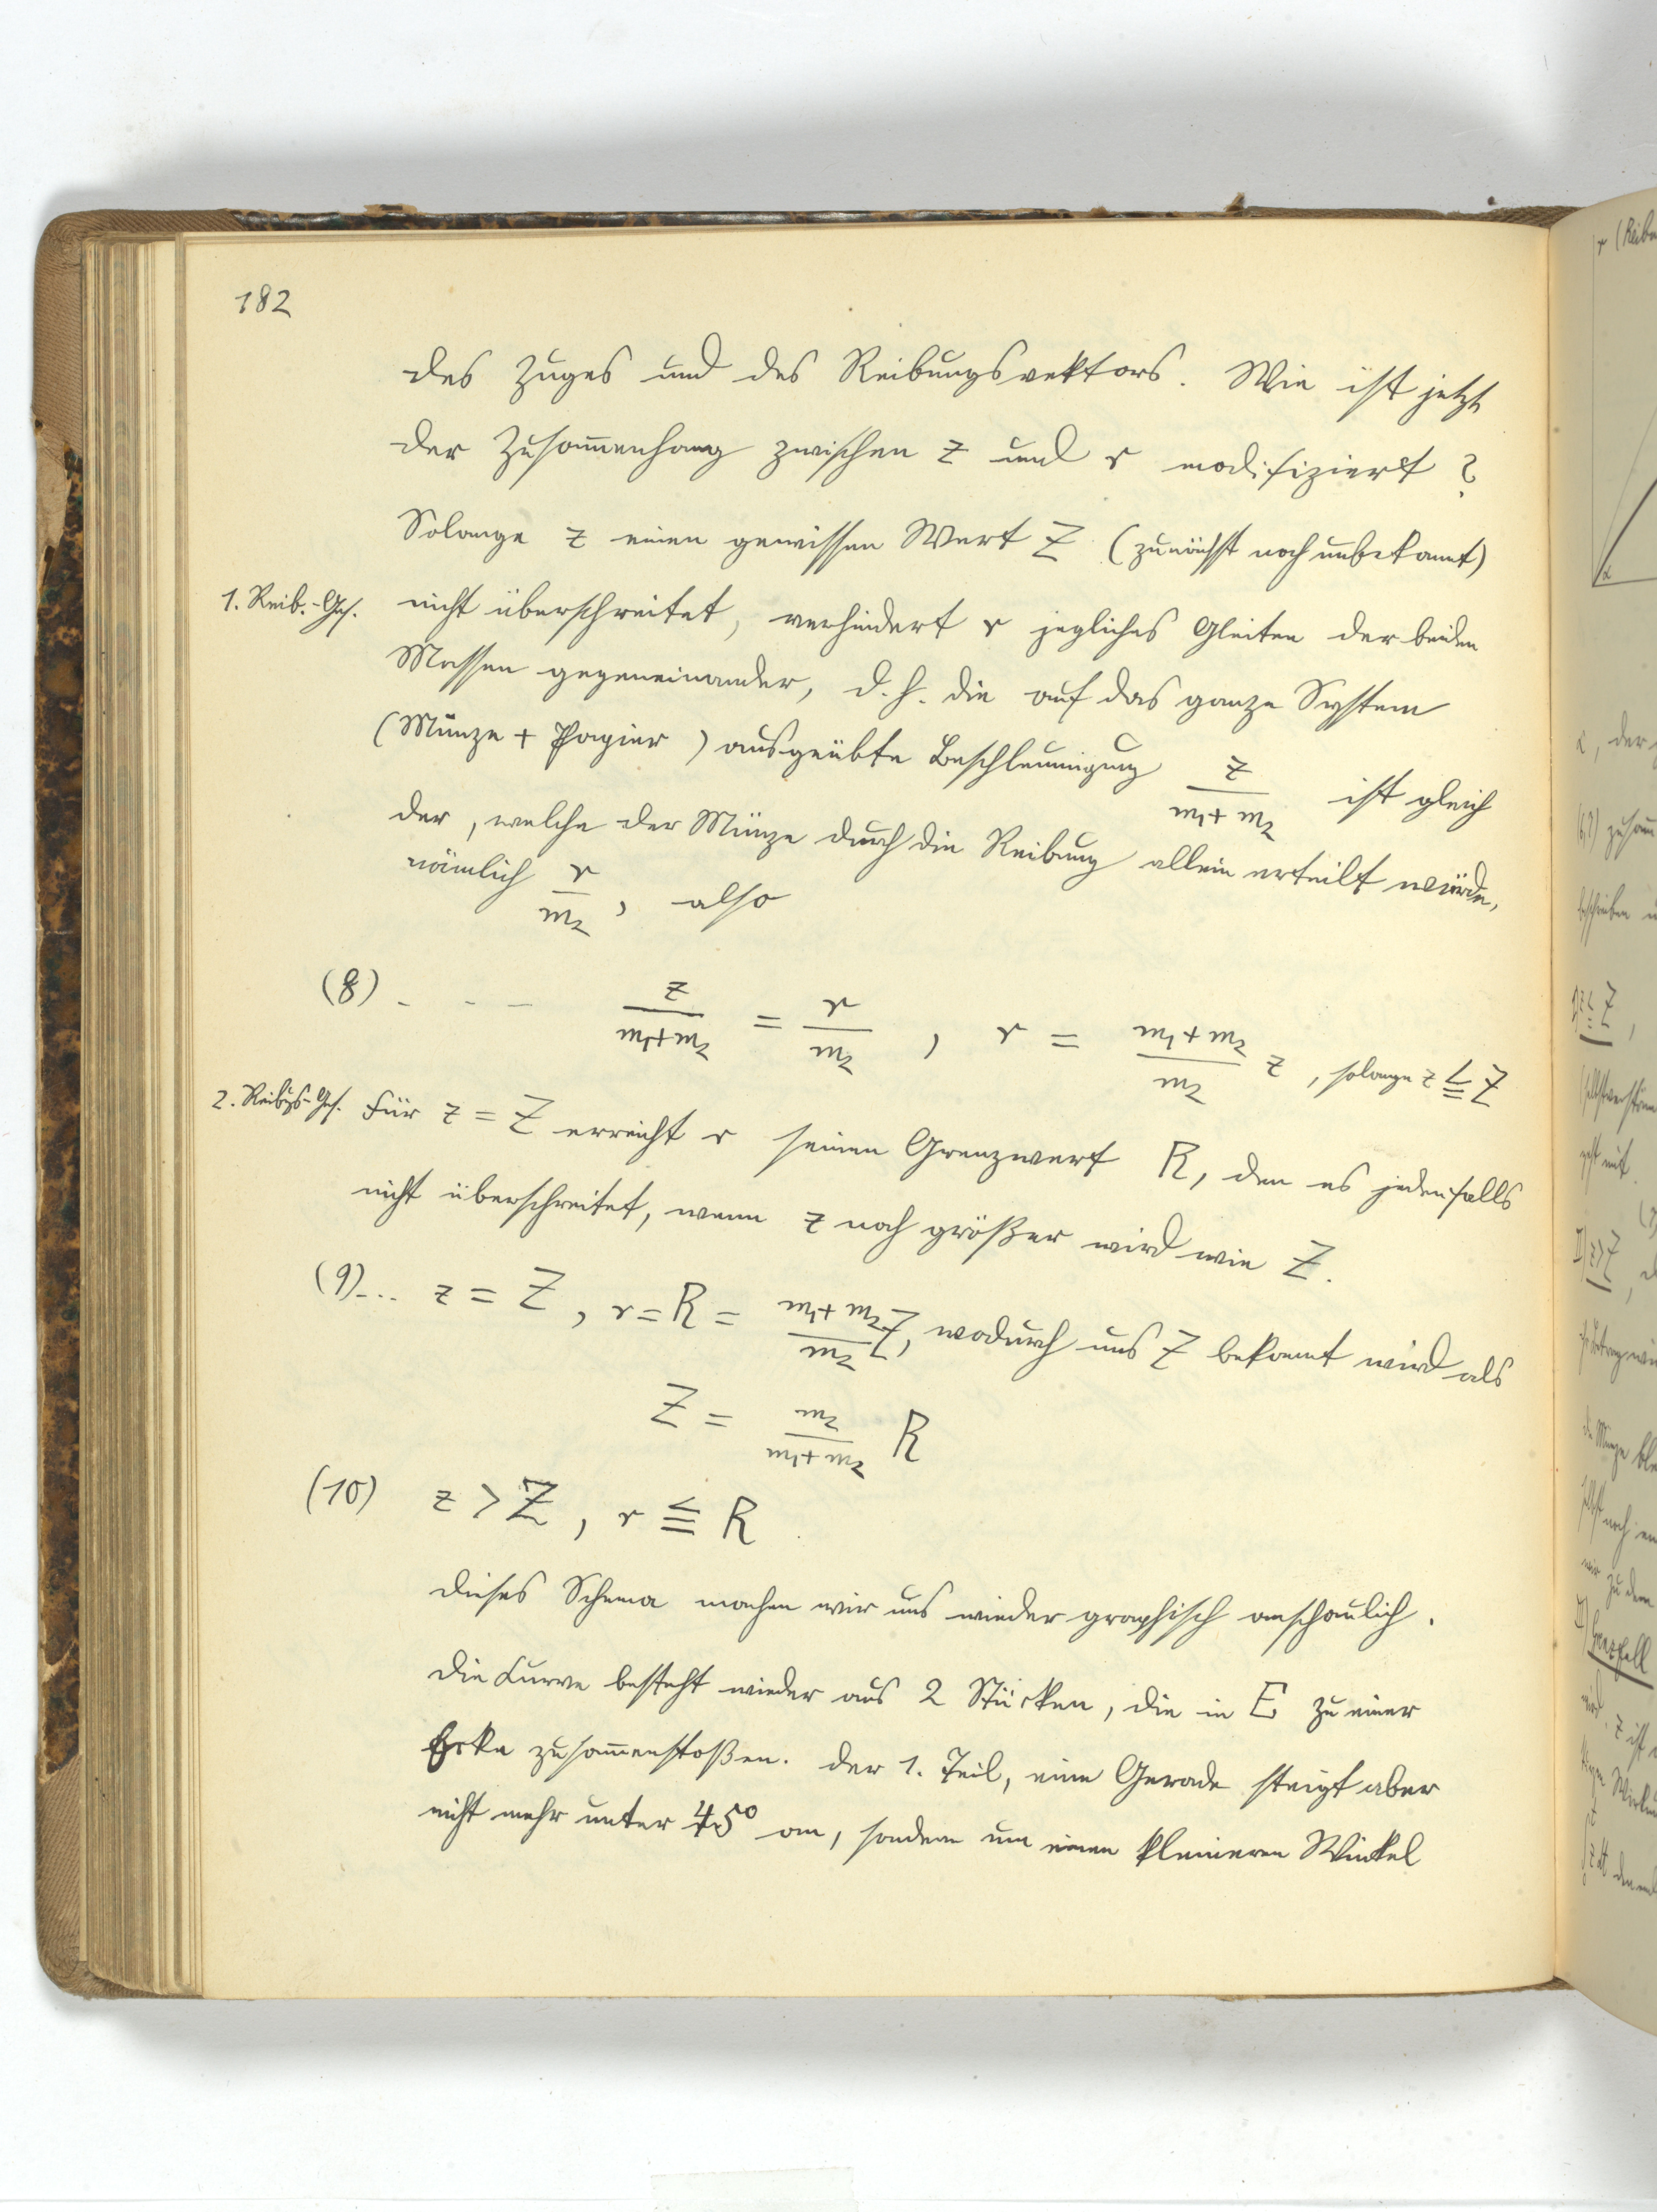 182
des Zuges und des Reibungsvektors. Wie ist jetzt
der Zusam̅enhang zwischen z und r modifiziert?
Solange z einen gewissen Wert Z (zunächst noch unbekannt)
1. Reib.-Ges. nicht überschreitet, verhindert r jegliches Gleiten der beiden
Massen gegeneinander, d.h. die auf das ganze System
(Münze + Papier) ausgeübte Beschleunigung z/(m₁+m₂) ist gleich
der, welche der Münze durch die Reibung allein erteilt würde,
nämlich r/m₂, also
(8) - - - z/(m₁+m₂) = r/m₂ , r = (m₁+m₂)/m₂ z , solange z ≦ Z
2. Reibgs-Ges. Für z = Z erreicht r seinen Grenzwert R, den es jedenfalls
nicht überschreitet, wenn z noch größer wird wie Z.
(9)... z = Z , r = R = (m₁+m₂)/m₂ Z, wodurch uns Z bekannt wird als
Z = m₂/(m₁+m₂) R
(10) z > Z , r ≦ R
Dieses Schema machen wir uns wieder graphisch anschaulich.
Die Kurve besteht wieder aus 2 Stücken, die in E zu einer
Ecke zusam̅enstoßen. Der 1. Teil, eine Gerade steigt aber
nicht mehr unter 45° an, sondern um einen kleineren Winkel
r (Reib
α
, der
zusam̅
≦ Z,
z > Z
Grenzfall
z ist